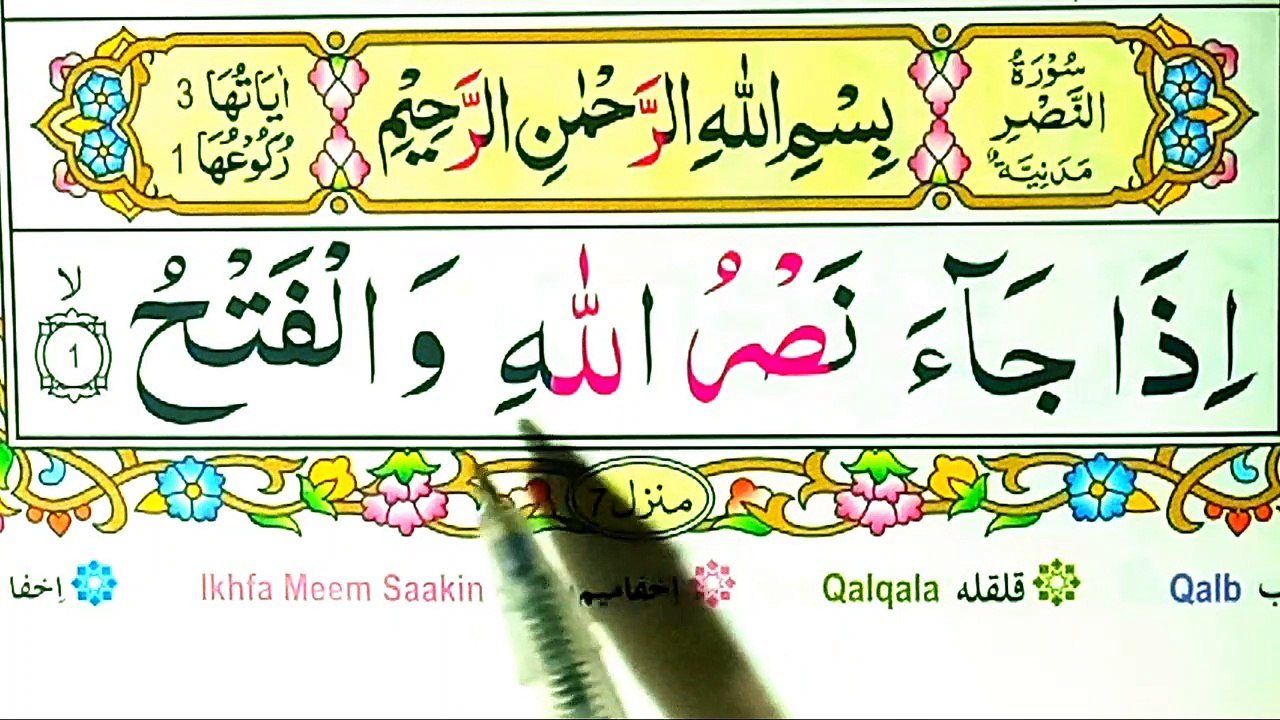 سُوْرَةُ النَّصْرِ مَدَنِيَّةٌ
بِسْمِ اللّٰهِ الرَّحْمٰنِ الرَّحِيْمِ
اٰيَاتُهَا 3
رُكُوْعُهَا 1
اِذَا جَآءَ نَصْرُ اللّٰهِ وَالْفَتْحُ لا 1
منزل 7
Qalb قلقله Qalqala اخفا ميم Ikhfa Meem Saakin اِخفا